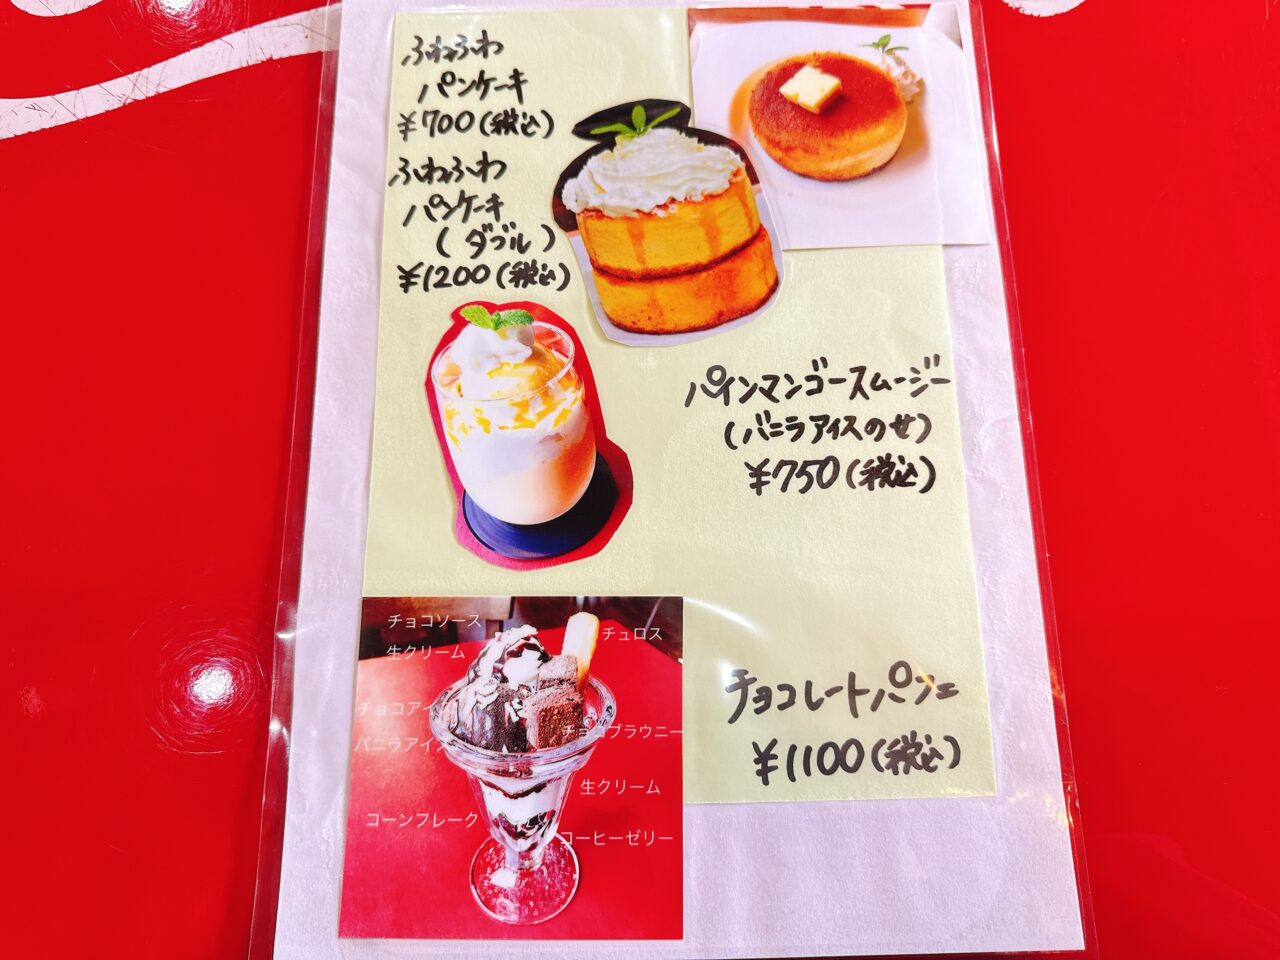 ふわふわ
パンケーキ
¥700(税込)
ふわふわ
パンケーキ
(ダブル)
¥1200(税込)
パインマンゴースムージー
(バニラアイスのせ)
¥750(税込)
チョコソース
生クリーム
チュロス
チョコアイス
バニラアイス
チョコブラウニー
生クリーム
コーンフレーク
コーヒーゼリー
チョコレートパフェ
¥1100(税込)